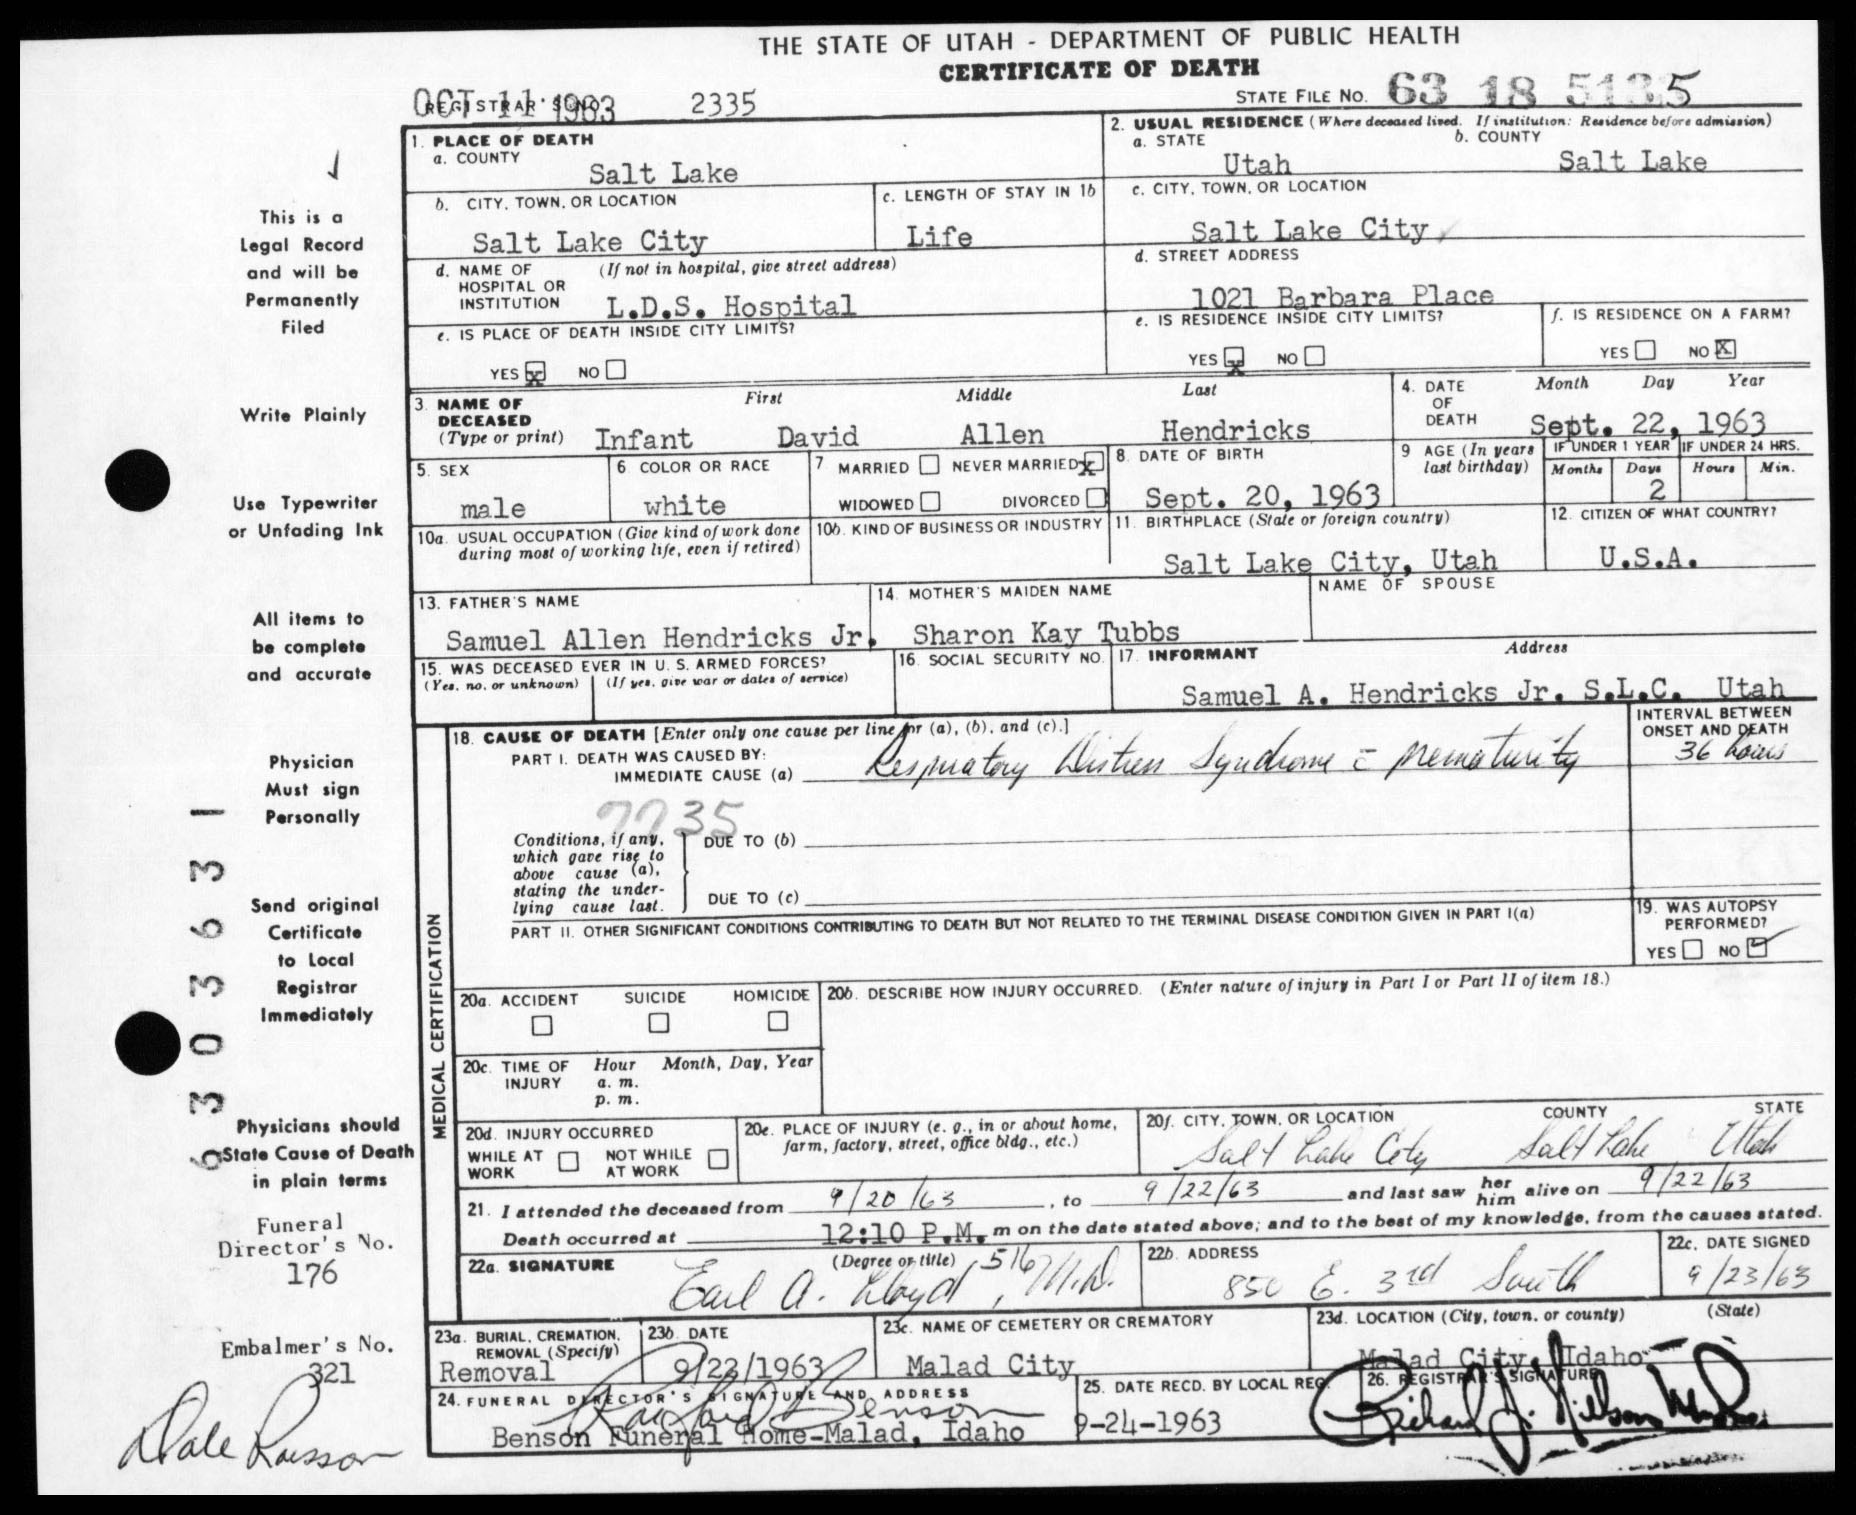 THE STATE OF UTAH - DEPARTMENT OF PUBLIC HEALTH
CERTIFICATE OF DEATH
OCT 11 1963
REGISTRAR'S NO. 2335
STATE FILE NO. 63 18 5135
1. PLACE OF DEATH
a. COUNTY
Salt Lake
2. USUAL RESIDENCE (Where deceased lived. If institution: Residence before admission)
a. STATE b. COUNTY
Utah Salt Lake
b. CITY, TOWN, OR LOCATION
Salt Lake City
c. LENGTH OF STAY IN 1b
Life
c. CITY, TOWN, OR LOCATION
Salt Lake City
d. NAME OF HOSPITAL OR INSTITUTION (If not in hospital, give street address)
L.D.S. Hospital
d. STREET ADDRESS
1021 Barbara Place
e. IS PLACE OF DEATH INSIDE CITY LIMITS?
YES X NO
e. IS RESIDENCE INSIDE CITY LIMITS?
YES X NO
f. IS RESIDENCE ON A FARM?
YES NO X
3. NAME OF DECEASED (Type or print) First Middle Last
Infant David Allen Hendricks
4. DATE OF DEATH Month Day Year
Sept. 22, 1963
5. SEX
male
6. COLOR OR RACE
white
7. MARRIED NEVER MARRIED X
WIDOWED DIVORCED
8. DATE OF BIRTH
Sept. 20, 1963
9 AGE (In years last birthday)
IF UNDER 1 YEAR IF UNDER 24 HRS.
Months Days Hours Min.
2
10a. USUAL OCCUPATION (Give kind of work done during most of working life, even if retired)
10b. KIND OF BUSINESS OR INDUSTRY
11. BIRTHPLACE (State or foreign country)
Salt Lake City, Utah
12. CITIZEN OF WHAT COUNTRY?
U.S.A.
13. FATHER'S NAME
Samuel Allen Hendricks Jr.
14. MOTHER'S MAIDEN NAME
Sharon Kay Tubbs
NAME OF SPOUSE
15. WAS DECEASED EVER IN U. S. ARMED FORCES?
(Yes, no, or unknown) (If yes, give war or dates of service)
16. SOCIAL SECURITY NO.
17. INFORMANT Address
Samuel A. Hendricks Jr. S.L.C. Utah
MEDICAL CERTIFICATION
18. CAUSE OF DEATH [Enter only one cause per line for (a), (b), and (c).]
INTERVAL BETWEEN ONSET AND DEATH
PART I. DEATH WAS CAUSED BY:
IMMEDIATE CAUSE (a) Respiratory Distress Syndrome = prematurity 36 hours
7735
Conditions, if any, which gave rise to above cause (a), stating the underlying cause last.
DUE TO (b)
DUE TO (c)
PART II. OTHER SIGNIFICANT CONDITIONS CONTRIBUTING TO DEATH BUT NOT RELATED TO THE TERMINAL DISEASE CONDITION GIVEN IN PART I(a)
19. WAS AUTOPSY PERFORMED?
YES NO ✓
20a. ACCIDENT SUICIDE HOMICIDE
20b. DESCRIBE HOW INJURY OCCURRED. (Enter nature of injury in Part I or Part II of item 18.)
20c. TIME OF INJURY Hour Month, Day, Year
a. m.
p. m.
20d. INJURY OCCURRED
WHILE AT WORK NOT WHILE AT WORK
20e. PLACE OF INJURY (e. g., in or about home, farm, factory, street, office bldg., etc.)
20f. CITY, TOWN, OR LOCATION COUNTY STATE
Salt Lake City Salt Lake Utah
21. I attended the deceased from 9/20/63, to 9/22/63 and last saw her him alive on 9/22/63
Death occurred at 12:10 P.M. m on the date stated above; and to the best of my knowledge, from the causes stated.
22a. SIGNATURE (Degree or title)
Earl A. Lloyd, M.D. 516
22b. ADDRESS
850 E. 3rd South
22c. DATE SIGNED
9/23/63
23a. BURIAL, CREMATION, REMOVAL (Specify)
Removal
23b. DATE
9/23/1963
23c. NAME OF CEMETERY OR CREMATORY
Malad City
23d. LOCATION (City, town, or county) (State)
Malad City, Idaho
24. FUNERAL DIRECTOR'S SIGNATURE AND ADDRESS
Benson
Benson Funeral Home-Malad, Idaho
25. DATE RECD. BY LOCAL REG.
9-24-1963
26. REGISTRAR'S SIGNATURE
Richard J. Nilson
This is a
Legal Record
and will be
Permanently
Filed
Write Plainly
Use Typewriter
or Unfading Ink
All items to
be complete
and accurate
Physician
Must sign
Personally
Send original
Certificate
to Local
Registrar
Immediately
Physicians should
State Cause of Death
in plain terms
Funeral
Director's No.
176
Embalmer's No.
321
6303631